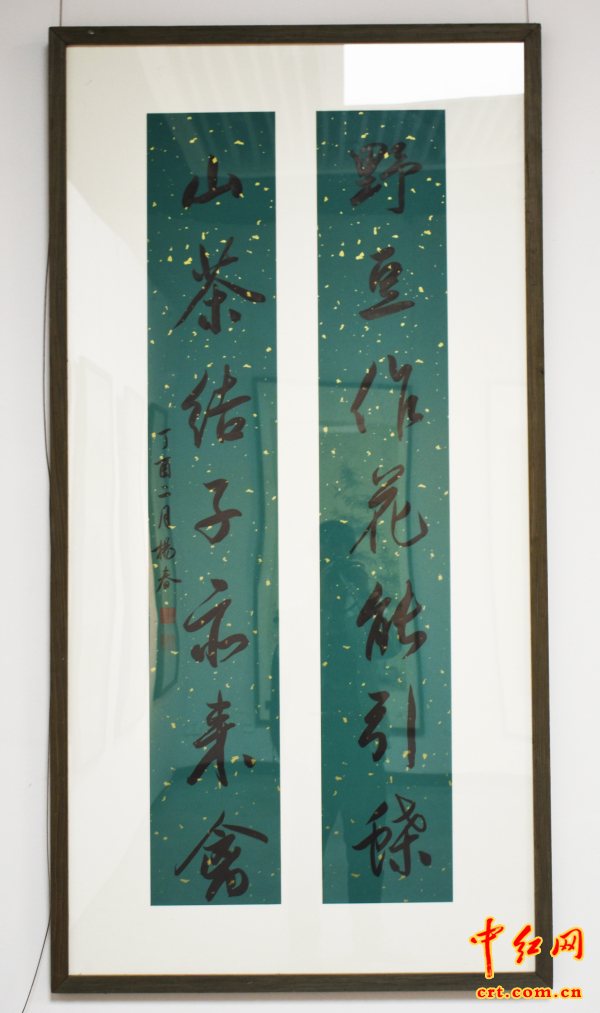 野豆作花能引蝶
山茶结子亦来禽
丁酉二月杨春
中红网
crt.com.cn